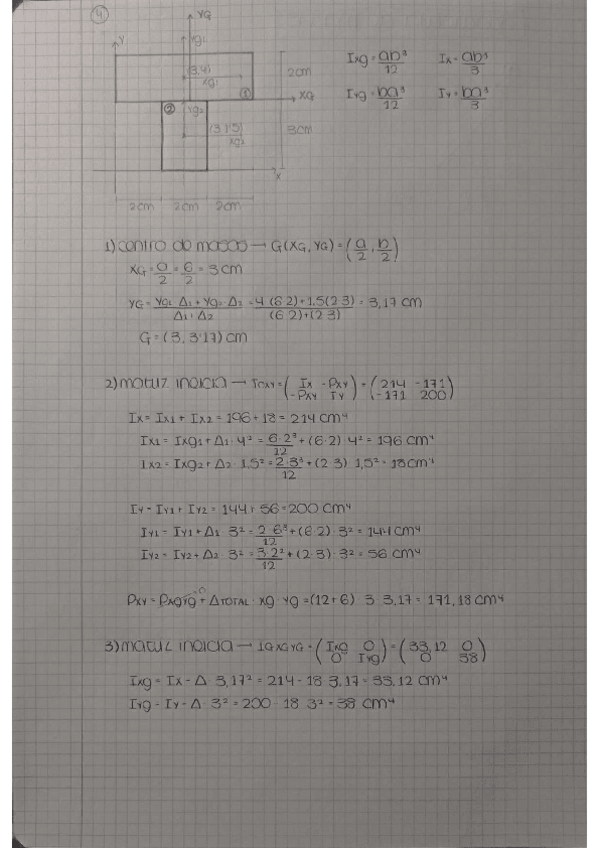 4
YG
Y
yg1
(3,4)
xg1
1
2cm
XG
2
yg2
(3,1.5)
xg2
3cm
X
2cm 2cm 2cm
Ixg = ab³/12 Ix = ab³/3
Iyg = ba³/12 Iy = ba³/3
1) centro de masas → G(XG, YG) = (a/2, b/2)
XG = a/2 = 6/2 = 3 cm
YG = (yg1·A1 + yg2·A2)/(A1+A2) = (4·(6·2)+1.5(2·3))/((6·2)+(2·3)) = 3,17 cm
G = (3, 3'17) cm
2) matriz inercia → Ioxy = (Ix -Pxy / -Pxy Iy) = (214 -171 / -171 200)
Ix = Ix1 + Ix2 = 196 + 18 = 214 cm⁴
Ix1 = Ixg1 + A1·4² = 6·2³/12 + (6·2)·4² = 196 cm⁴
Ix2 = Ixg2 + A2·1,5² = 2·3³/12 + (2·3)·1,5² = 18 cm⁴
Iy = Iy1 + Iy2 = 144 + 56 = 200 cm⁴
Iy1 = Iy1 + A1·3² = 2·6³/12 + (6·2)·3² = 144 cm⁴
Iy2 = Iy2 + A2·3² = 3·2³/12 + (2·3)·3² = 56 cm⁴
Pxy = Pxgyg + ATOTAL·xg·yg = (12+6)·3·3,17 = 171,18 cm⁴
3) matriz inercia → IGXGYG = (Ixg 0 / 0 Iyg) = (33,12 0 / 0 38)
Ixg = Ix - A·3,17² = 214 - 18·3,17 = 33,12 cm⁴
Iyg = Iy - A·3² = 200 - 18·3² = 38 cm⁴